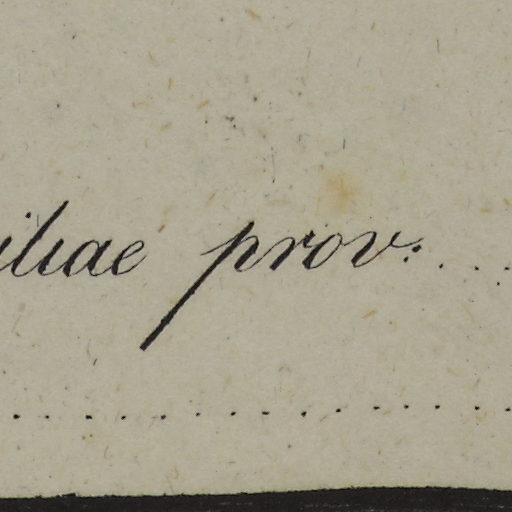 iliae prov:....